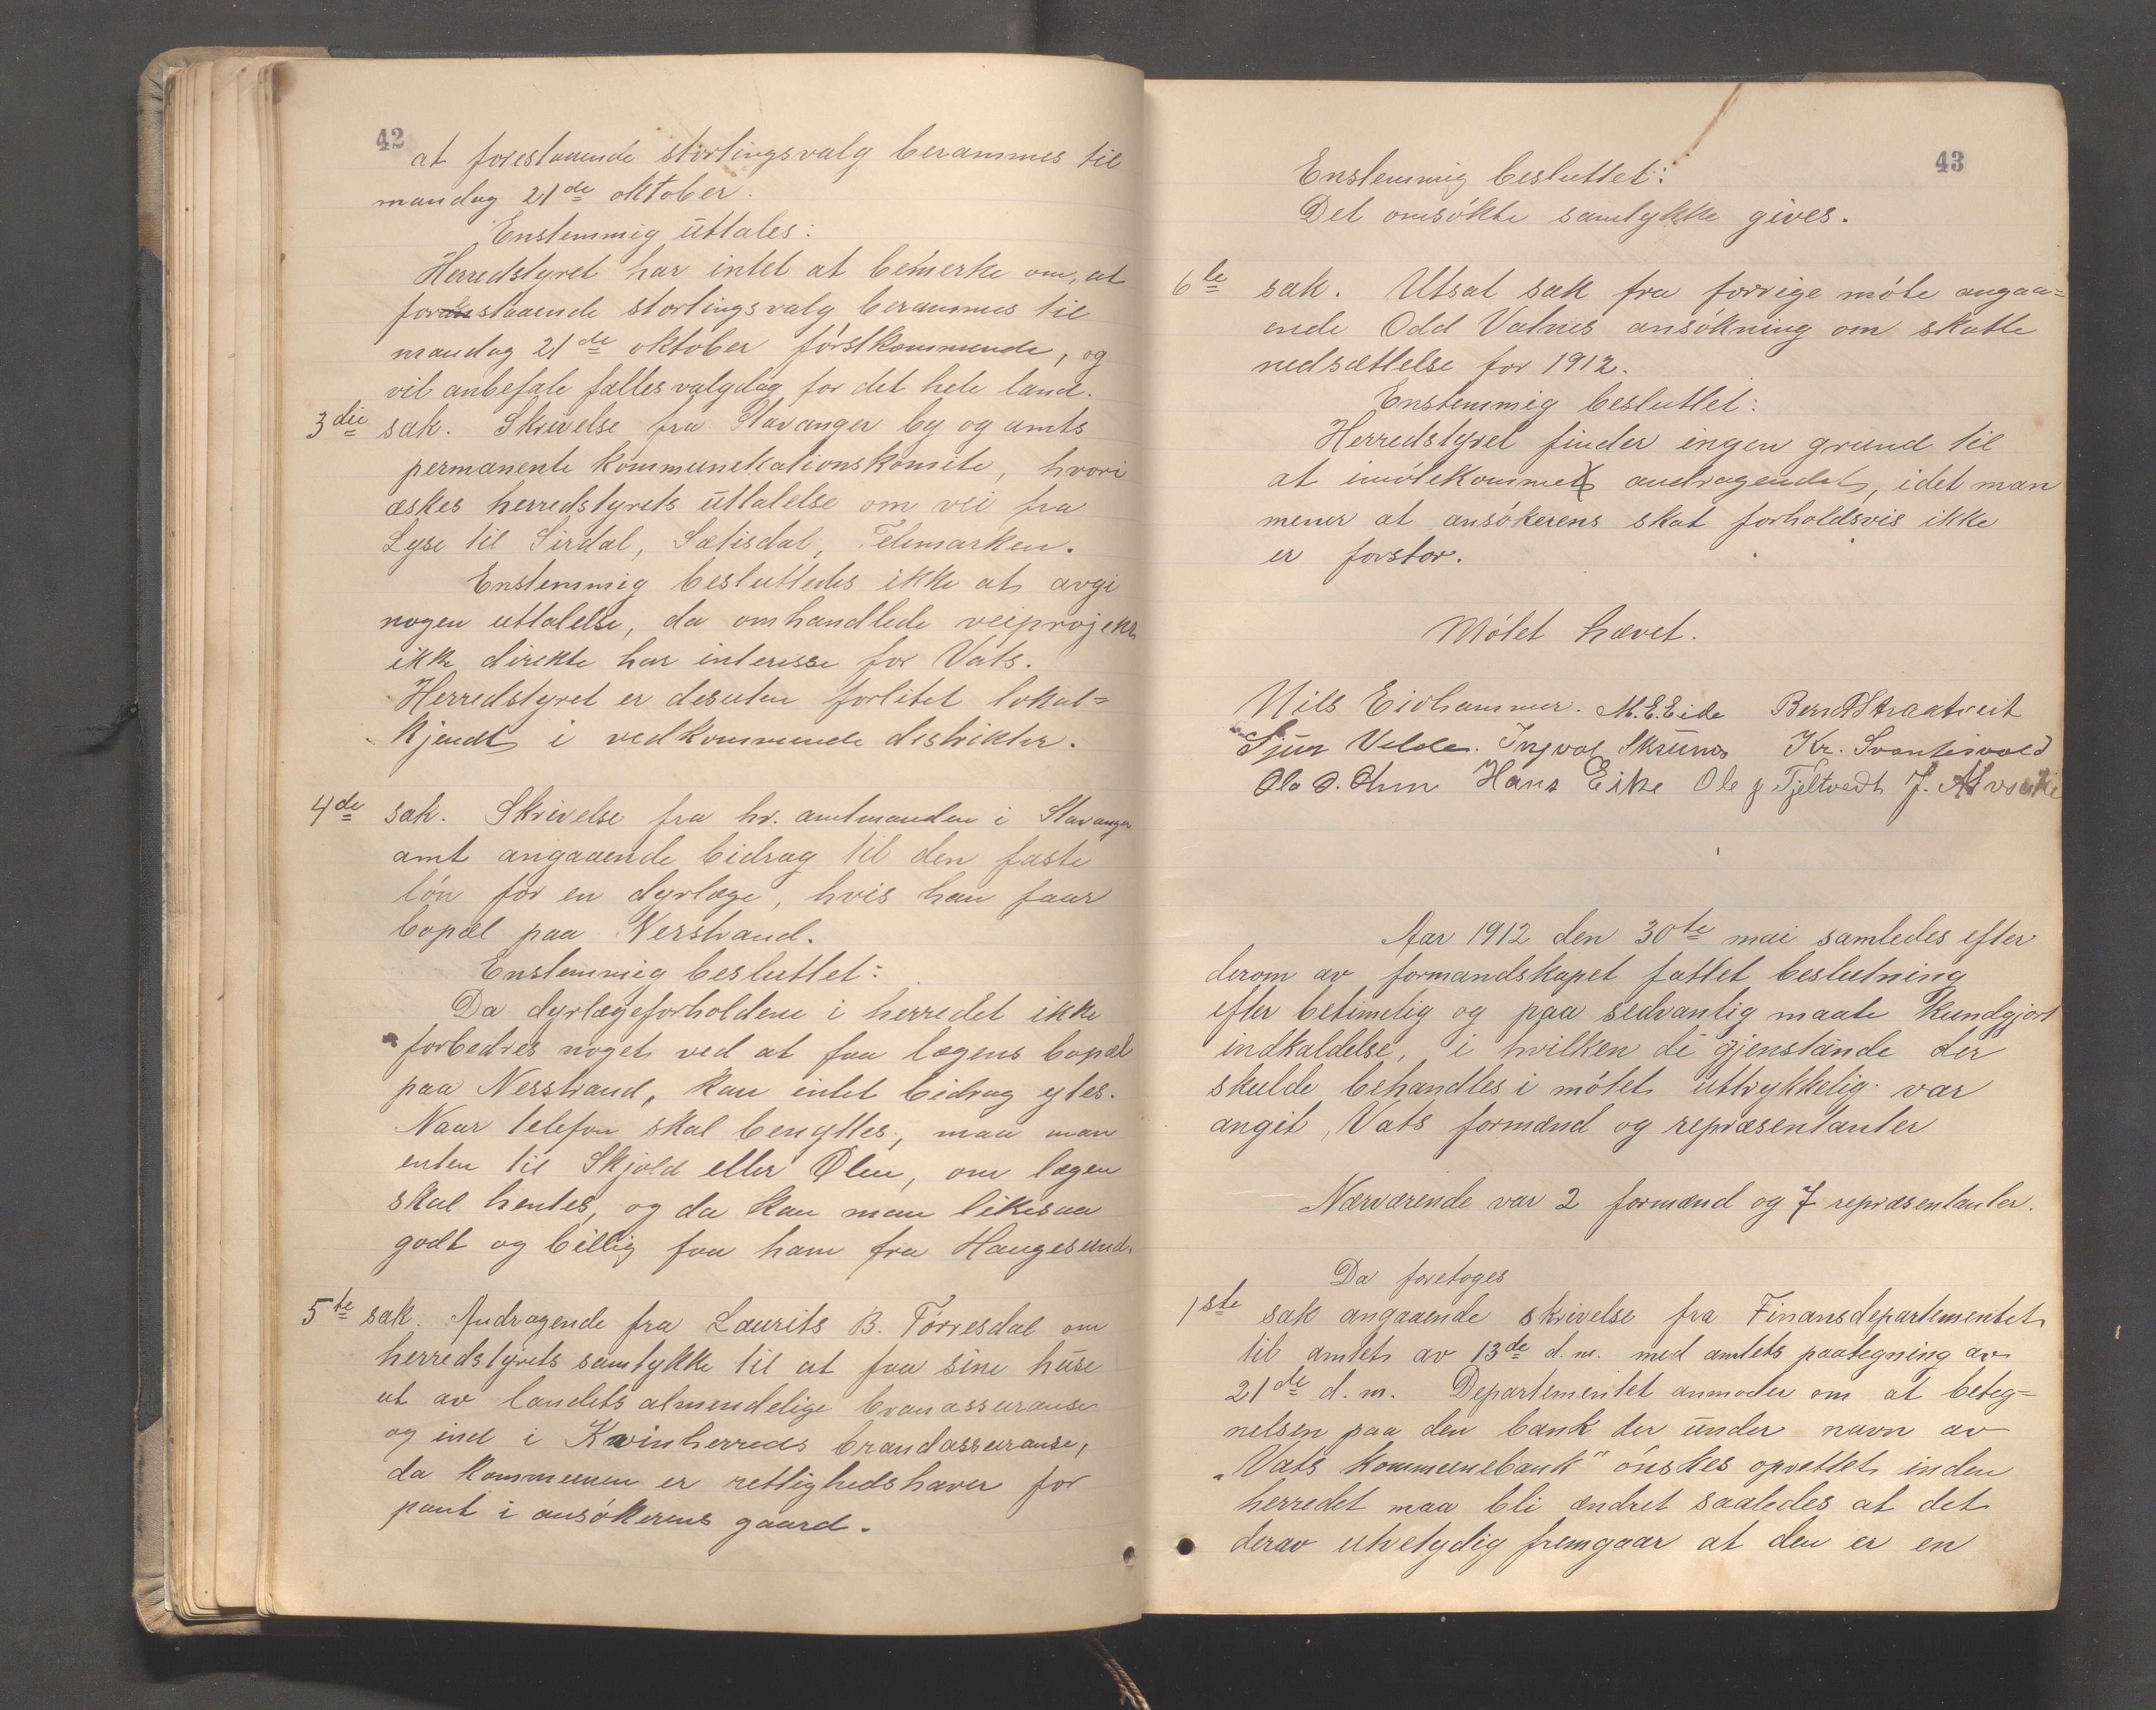 42
at forestaaende stortingsvalg berammes til
mandag 21de oktober.
Enstemmig uttales:
Herredstyret har intet at bemerke om, at
forestaaende stortingsvalg berammes til
mandag 21de oktober førstkommende, og
vil anbefale fælles valgdag for det hele land.
3die sak. Skrivelse fra Stavanger by og amts
permanente kommunikationskomite, hvori
æskes herredstyrets uttalelse om vei fra
Lyse til Sirdal, Sætisdal, Telemarken.
Enstemmig besluttedes ikke at avgi
nogen uttalelse, da omhandlede veiprojekt
ikke direkte har interesse for Vats.
Herredstyret er desuten forlitet lokal=
kjendt i vedkommende distrikter.
4de sak. Skrivelse fra hr. amtmanden i Stavanger
amt angaaende bidrag til den faste
løn for en dyrlæge, hvis han faar
bopæl paa Nerstrand.
Enstemmig besluttet:
Da dyrlægeforholdene i herredet ikke
forbedres noget ved at faa lægens bopæl
paa Nerstrand, kan intet bidrag ytes.
Naar telefon skal benyttes, maa man
enten til Skjold eller Ølen, om lægen
skal hentes, og da kan man likesaa
godt og billig faa ham fra Haugesund.
5te sak. Andragende fra Laurits B. Tørresdal om
herredstyrets samtykke til at faa sine huse
ut av landets almendelige branassuranse
og ind i Kvinherreds brandassuranse,
da kommunen er rettighedshaver for
pant i ansøkerens gaard.
43
Enstemmig besluttet:
Det omsøkte samtykke gives.
6te sak. Utsat sak fra forrige møte angaa=
ende Odd Vatnes ansøkning om skatte
nedsættelse for 1912.
Enstemmig besluttet:
Herredstyret finder ingen grund til
at imøtekomme andragendet, idet man
mener at ansøkerens skat forholdsvis ikke
er forstor.
Møtet hævet.
Nils Eidhammer. M.E. Eide Bernt Straatveit
Sjur Velde. Ingvol Skrunes Kr. Svartesvold
Ola O. Hans Eike Ole J Fjeltvedt J. Alvseike
Aar 1912 den 30te mai samledes efter
derom av formandskapet fattet beslutning
efter betimelig og paa sedvanlig maate kundgjort
indkaldelse, i hvilken de gjenstande der
skulde behandles i møtet uttrykkelig var
angit, Vats formænd og repræsentanter
Nærværende var 2 formænd og 7 repræsentanter.
Da foretoges
1ste sak angaaende skrivelse fra Finansdepartementet
til amtet av 13de d.m. med amtets paategning av
21de d.m. Departementet anmoder om at beteg=
nelsen paa den bank der under navn av
„Vats kommunebank" ønskes oprettet inden
herredet maa bli ændret saaledes at det
derav utvetydig fremgaar at den er en